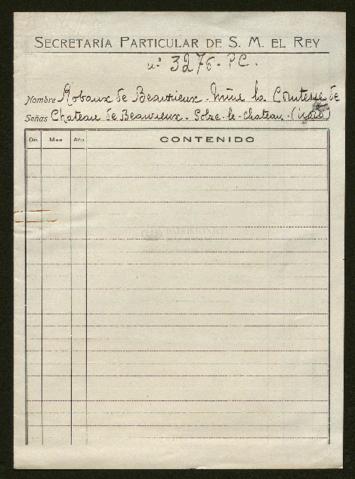 SECRETARÍA PARTICULAR DE S. M. EL REY
nº 3276-P.C.
Nombre Robaux de Beaurieux. Mme la Comtesse de
Señas Chateau de Beaurieux. Solre-le-chateau. (Nord)
Día Mes Año CONTENIDO